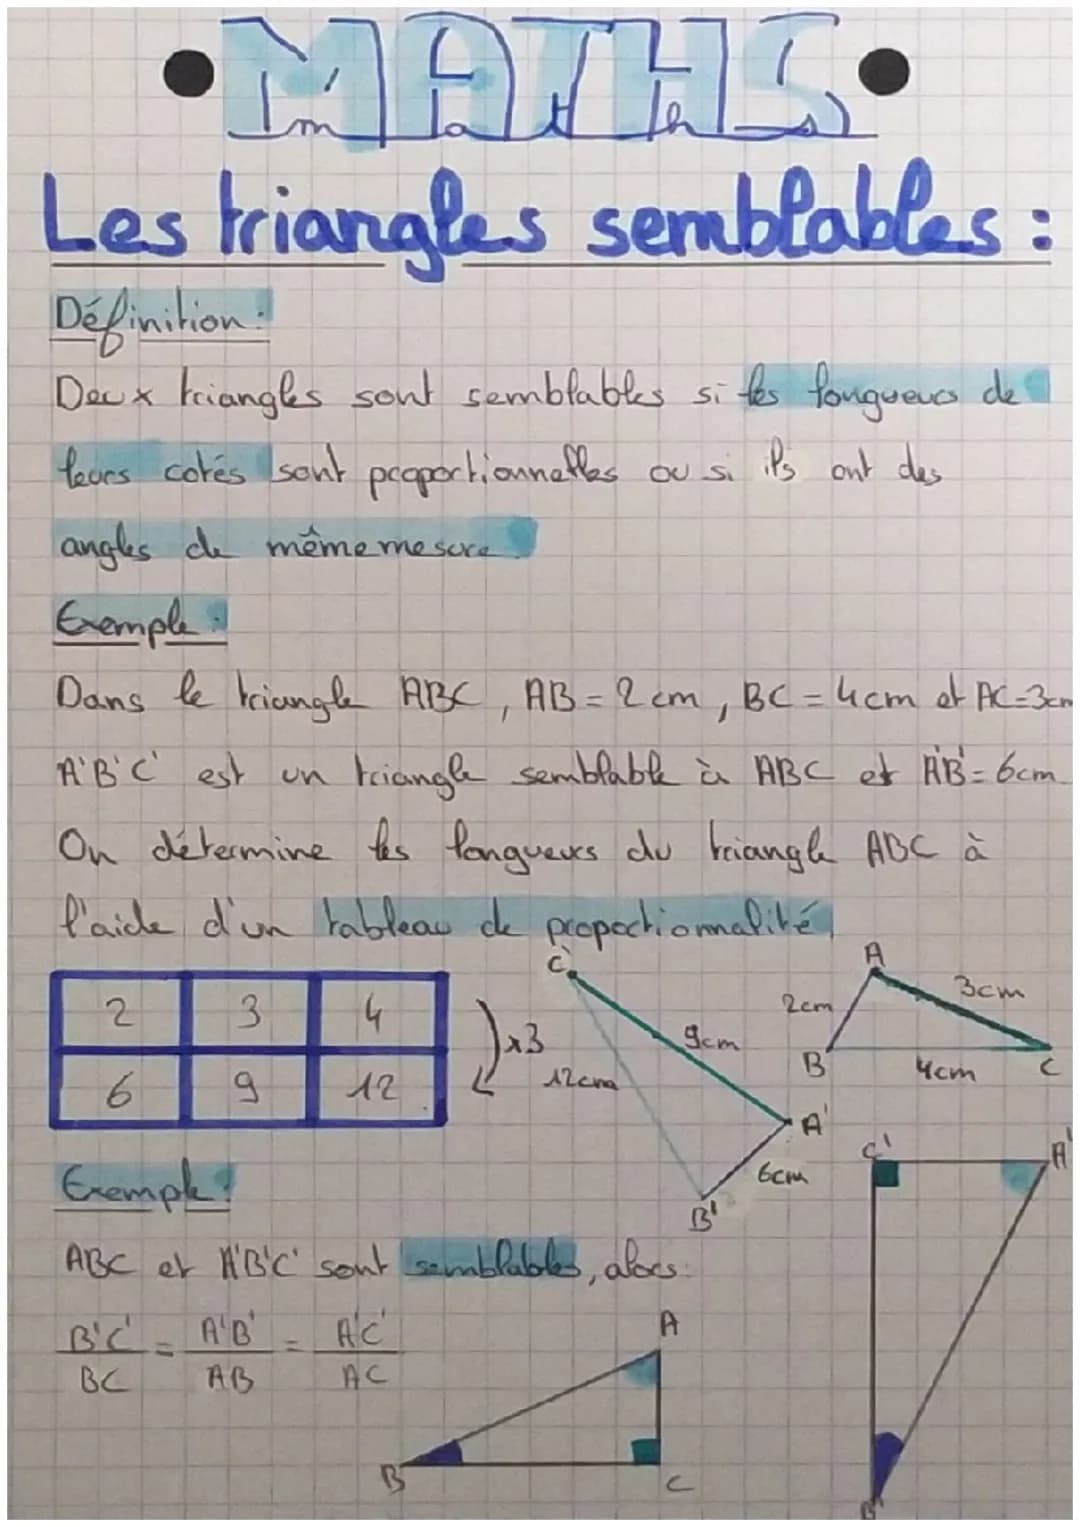 MATHS
maths
Les triangles semblables :
Définition :
Deux triangles sont semblables si les longueurs de
leurs cotés sont proportionnelles ou si ils ont des
angles de même mesure.
Exemple :
Dans le triangle ABC, AB = 2 cm, BC = 4 cm et AC = 3cm
A'B'C' est un triangle semblable à ABC et A'B' = 6cm
On détermine les longueurs du triangle ABC à
l'aide d'un tableau de proportionnalité,
2 3 4
6 9 12
x3
C'
12cm
9cm
A'
6cm
B'
A
2cm
3cm
B
4cm
C
Exemple :
ABC et A'B'C' sont semblables, alors :
B'C'/BC = A'B'/AB = A'C'/AC
A
B
C
C'
A'
B'